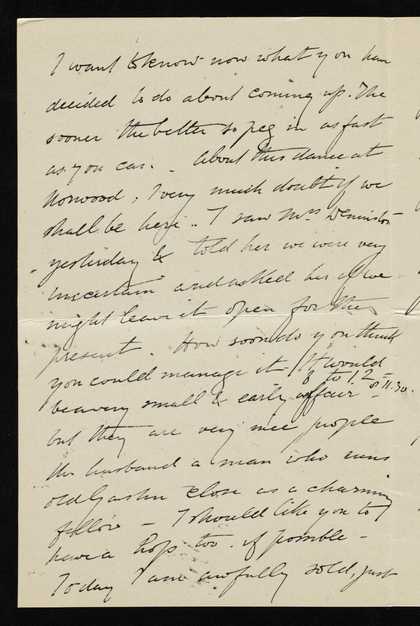 I want to know now what you have
decided to do about coming up. The
sooner the better so peg in as fast
as you can. About this dance at
Norwood, I very much doubt if we
shall be here. I saw Mrs
yesterday & told her we were very
uncertain and asked her if we
might leave it open for the
present. How soon do you think
you could manage it / It would
8 to 12 or 11.30.
be a very small & early affair
but they are very nice people
the husband a man who runs
old close as a charming
fellow - I should like you to
have a hop too if possible -
Today I am awfully sold, just